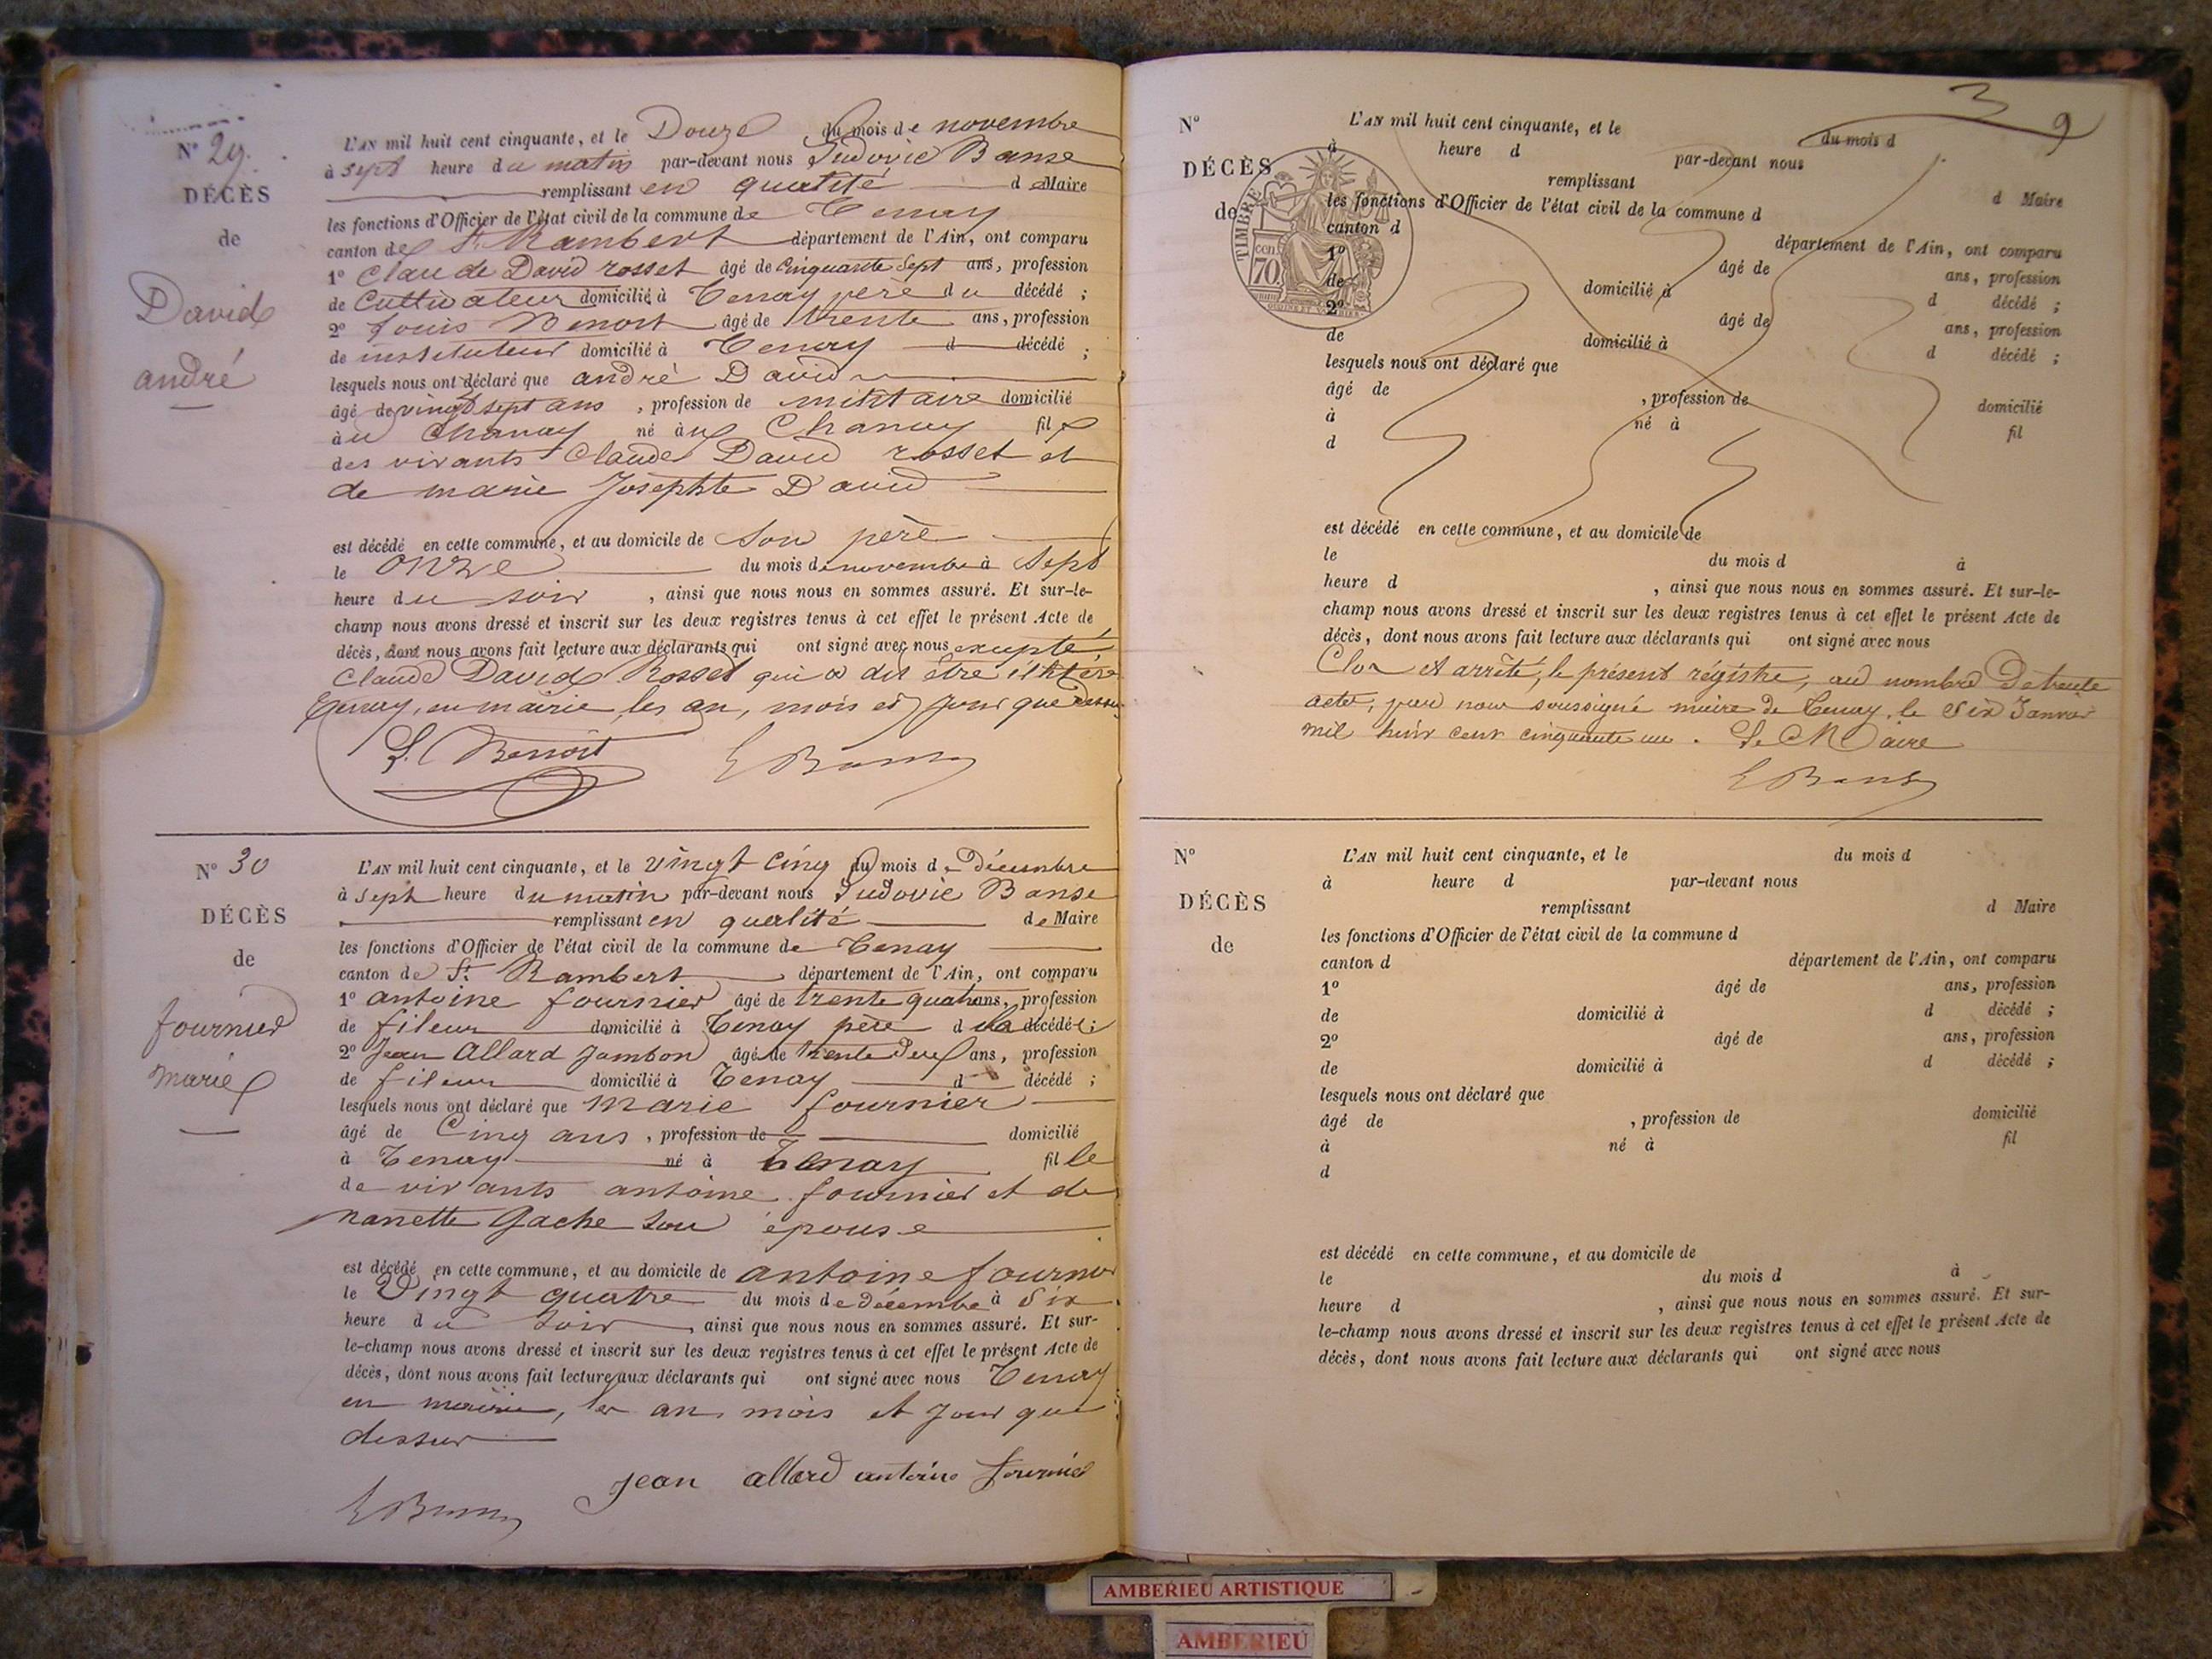 N° 29.
DÉCÈS
de
David
andré
L'AN mil huit cent cinquante, et le Douze du mois de novembre
à sept heure du matin par-devant nous Ludovic Banse
remplissant en qualité de Maire
les fonctions d'Officier de l'état civil de la commune de Tenay
canton de St Rambert département de l'Ain, ont comparu
1° Claude David rosset âgé de cinquante sept ans, profession
de Cultivateur domicilié à Tenay père du décédé ;
2° Louis Benoit âgé de trente ans, profession
de instituteur domicilié à Tenay d décédé ;
lesquels nous ont déclaré que andré David
âgé de vingt sept ans , profession de militaire domicilié
à u Chanay né à u Chanay fil
des vivants Claude David rosset et
de marie Josephte David
est décédé en cette commune, et au domicile de son père
le onze du mois de novembre à sept
heure du soir , ainsi que nous nous en sommes assuré. Et sur-le-
champ nous avons dressé et inscrit sur les deux registres tenus à cet effet le présent Acte de
décès, dont nous avons fait lecture aux déclarants qui ont signé avec nous excepté
Claude David Rosset qui a dit être
Tenay, en mairie, les an, mois et jour que dessus
L. Benoit L Banse
N° 30
DÉCÈS
de
fournier
marie
L'AN mil huit cent cinquante, et le vingt cinq du mois de Décembre
à sept heure du matin par-devant nous Ludovic Banse
remplissant en qualité de Maire
les fonctions d'Officier de l'état civil de la commune de Tenay
canton de St. Rambert département de l'Ain, ont comparu
1° antoine fournier âgé de trente quatre ans, profession
de fileur domicilié à Tenay père d la décédée ;
2° Jean Allard Jambon âgé de trente deux ans, profession
de fileur domicilié à Tenay d décédé ;
lesquels nous ont déclaré que marie fournier
âgé de Cinq ans , profession de domicilié
à Tenay né à Tenay fille
de vivants antoine fournier et de
nanette Gache son épouse
est décédé en cette commune, et au domicile de antoine fournier
le Vingt quatre du mois de décembre à Six
heure du soir , ainsi que nous nous en sommes assuré. Et sur-
le-champ nous avons dressé et inscrit sur les deux registres tenus à cet effet le présent Acte de
décès, dont nous avons fait lecture aux déclarants qui ont signé avec nous Tenay
en mairie, les an mois et jour que
dessus
jean allard antoine fournier
L Banse
39
N°
DÉCÈS
de
TIMBRE
cen.
70.
L'AN mil huit cent cinquante, et le du mois d
à heure d par-devant nous
remplissant d Maire
les fonctions d'Officier de l'état civil de la commune d
canton d département de l'Ain, ont comparu
1° âgé de ans, profession
de domicilié à d décédé ;
2° âgé de ans, profession
de domicilié à d décédé ;
lesquels nous ont déclaré que
âgé de , profession de domicilié
à né à fil
d
est décédé en cette commune, et au domicile de
le du mois d à
heure d , ainsi que nous nous en sommes assuré. Et sur-le-
champ nous avons dressé et inscrit sur les deux registres tenus à cet effet le présent Acte de
décès, dont nous avons fait lecture aux déclarants qui ont signé avec nous
Clos et arrêté, le présent régistre, au nombre De trente
actes, par nous soussigné maire de Tenay, le Six Janvier
mil huit cent cinquante un . Le Maire
L Banse
N°
DÉCÈS
de
L'AN mil huit cent cinquante, et le du mois d
à heure d par-devant nous
remplissant d Maire
les fonctions d'Officier de l'état civil de la commune d
canton d département de l'Ain, ont comparu
1° âgé de ans, profession
de domicilié à d décédé ;
2° âgé de ans, profession
de domicilié à d décédé ;
lesquels nous ont déclaré que
âgé de , profession de domicilié
à né à fil
d
est décédé en cette commune, et au domicile de
le du mois d à
heure d , ainsi que nous nous en sommes assuré. Et sur-
le-champ nous avons dressé et inscrit sur les deux registres tenus à cet effet le présent Acte de
décès, dont nous avons fait lecture aux déclarants qui ont signé avec nous
AMBERIEU ARTISTIQUE
AMBERIEU